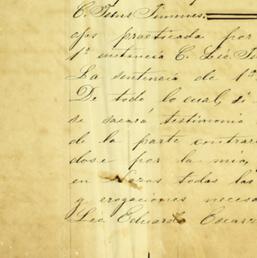 C. Jesus Jimenes.
ops practicada por
1ª instancia C. Lic.
La sentencia de 1ª
De todo lo cual, si
se sacará testimonio
de la parte contrar
dose por la mia,
en todas las
y erogaciones neces
Lic Eduardo